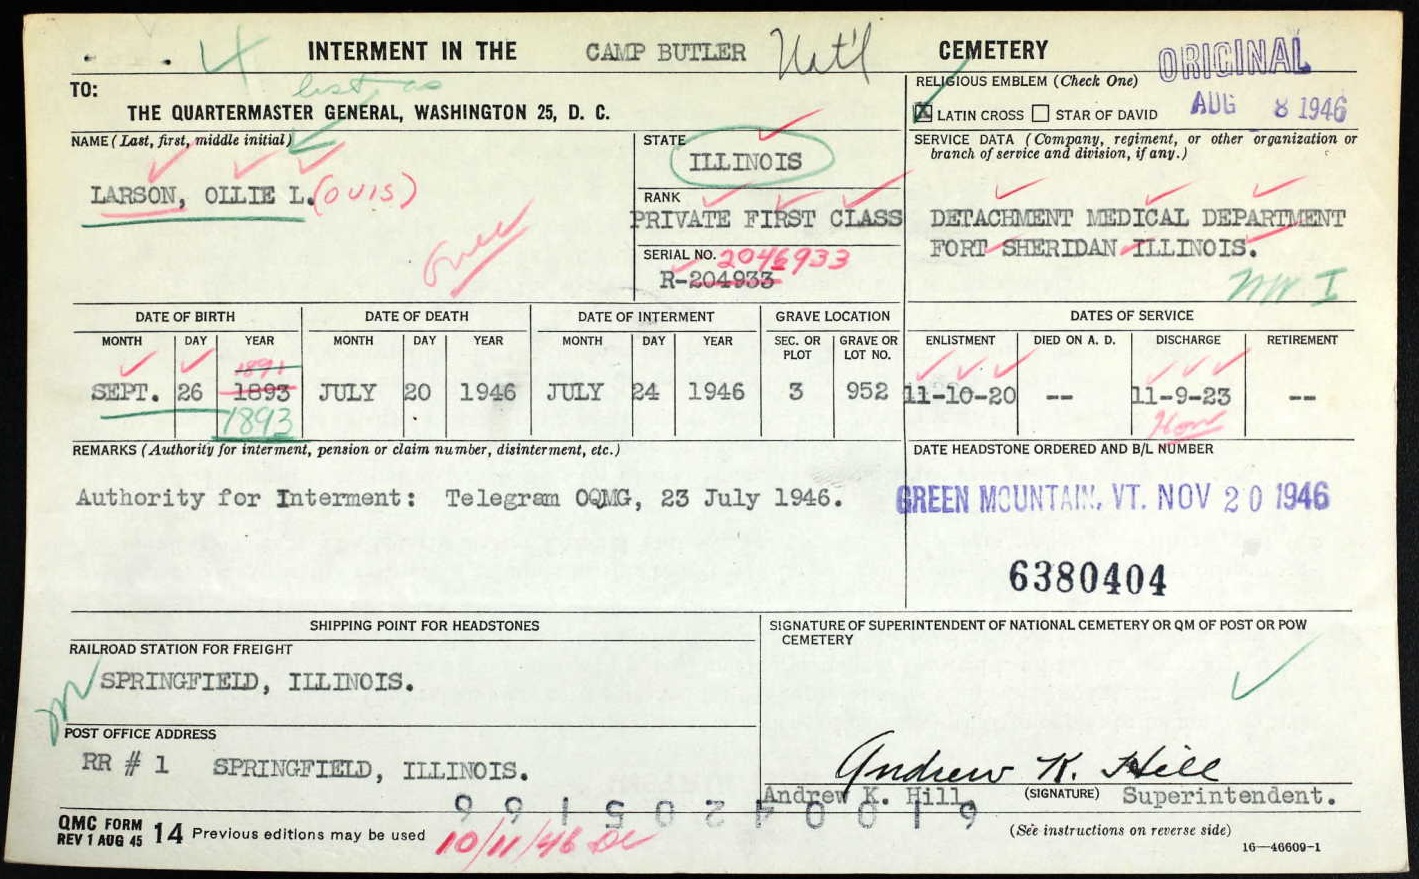 INTERMENT IN THE CAMP BUTLER Nat'l CEMETERY
ORIGINAL
AUG 8 1946
TO:
THE QUARTERMASTER GENERAL, WASHINGTON 25, D. C.
RELIGIOUS EMBLEM (Check One)
X LATIN CROSS STAR OF DAVID
NAME (Last, first, middle initial)
LARSON, OLLIE L. (OUIS)
STATE
ILLINOIS
RANK
PRIVATE FIRST CLASS
SERIAL NO. 2046933
R-204933
SERVICE DATA (Company, regiment, or other organization or
branch of service and division, if any.)
DETACHMENT MEDICAL DEPARTMENT
FORT SHERIDAN ILLINOIS.
WW I
DATE OF BIRTH DATE OF DEATH DATE OF INTERMENT GRAVE LOCATION DATES OF SERVICE
MONTH DAY YEAR MONTH DAY YEAR MONTH DAY YEAR SEC. OR PLOT GRAVE OR LOT NO. ENLISTMENT DIED ON A. D. DISCHARGE RETIREMENT
1891
SEPT. 26 1893 JULY 20 1946 JULY 24 1946 3 952 11-10-20 -- 11-9-23 --
1893 Hon
REMARKS (Authority for interment, pension or claim number, disinterment, etc.)
Authority for Interment: Telegram OQMG, 23 July 1946.
DATE HEADSTONE ORDERED AND B/L NUMBER
GREEN MOUNTAIN, VT. NOV 20 1946
6380404
SHIPPING POINT FOR HEADSTONES
RAILROAD STATION FOR FREIGHT
SPRINGFIELD, ILLINOIS.
POST OFFICE ADDRESS
RR # 1 SPRINGFIELD, ILLINOIS.
SIGNATURE OF SUPERINTENDENT OF NATIONAL CEMETERY OR QM OF POST OR POW
CEMETERY
Andrew K. Hill
Andrew K. Hill, (SIGNATURE) Superintendent.
QMC FORM
REV 1 AUG 45 14 Previous editions may be used
10/11/46
(See instructions on reverse side)
16—46609-1